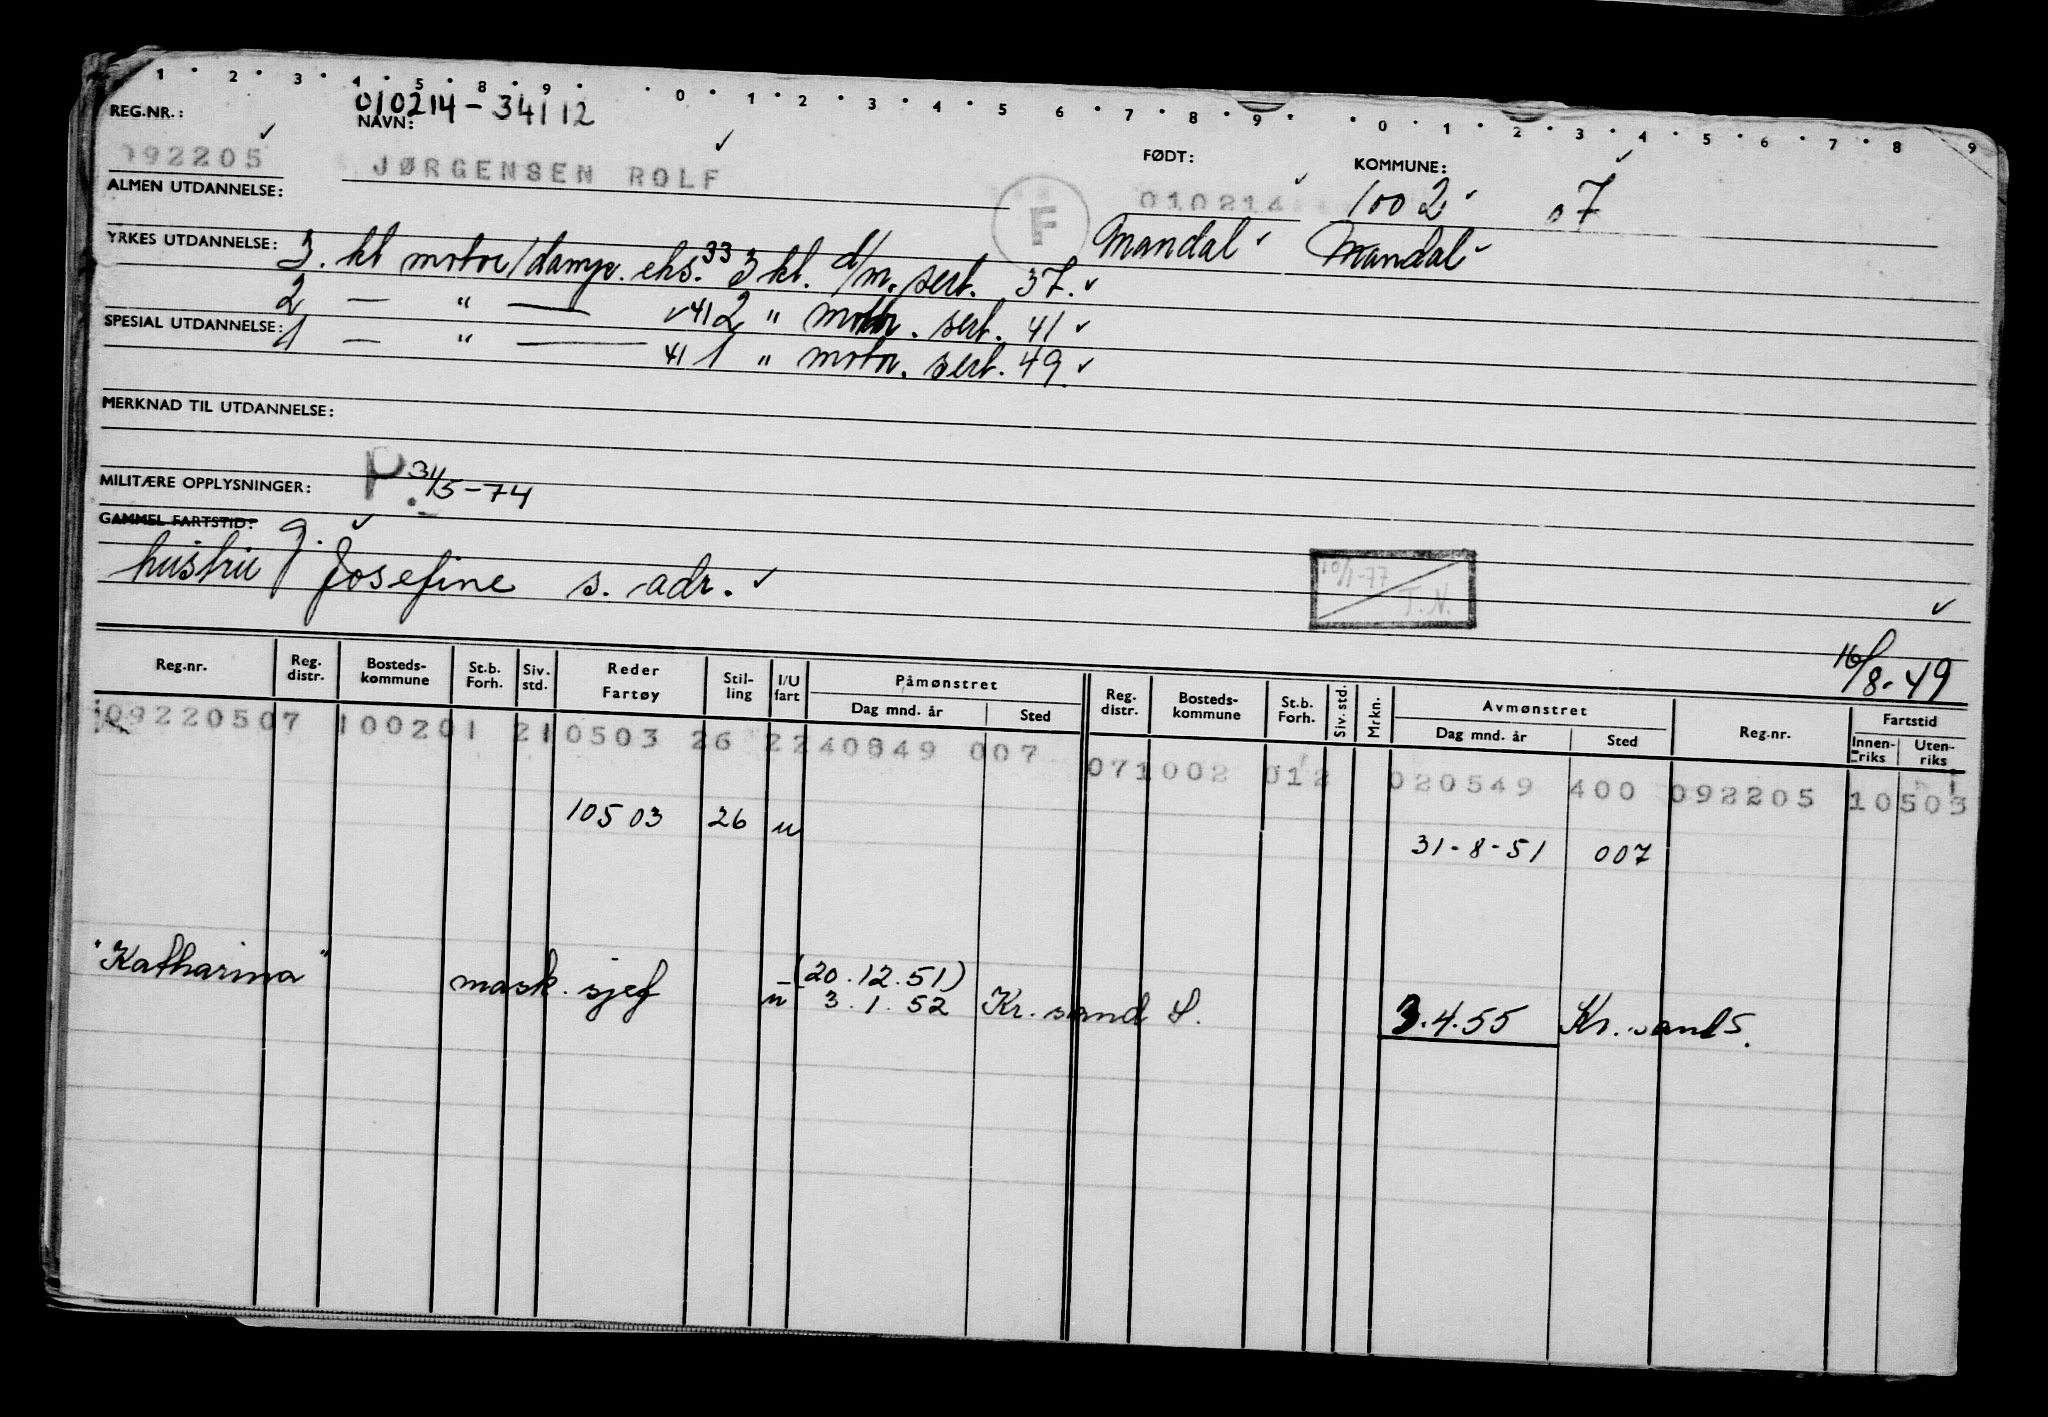 1 · 2 · 3 · 4 · 5 · 8 · 9 · · 0 · 1 · 2 · 3 · 4 · 5 6 · 7 · 8 · 9 · · 0 · 1 · 2 · 3 · 4 · 5 · 6 · 7 · 8 9
REG.NR.: 010214-34112
NAVN: FØDT: KOMMUNE:
092205 JØRGENSEN ROLF 010214 1002 07
ALMEN UTDANNELSE: F Mandal Mandal
YRKES UTDANNELSE: 3. kl motor/damp. eks. 33 3 kl. d/m. sert. 37.
2 — " — 41 2 " motor. sert. 41
SPESIAL UTDANNELSE: 1 — " — 41 1 " motor. sert. 49
MERKNAD TIL UTDANNELSE:
MILITÆRE OPPLYSNINGER: P. 31/5-74
GAMMEL FARTSTID: g.
hustru Josefine s. adr. 10/1-77 T.N.
16/8-49
Reg.nr. Reg. distr. Bosteds-kommune St.b. Forh. Siv. std. Reder Fartøy Stil-ling I/U fart Påmønstret Dag mnd. år Sted Reg. distr. Bosteds-kommune St.b. Forh. Siv. std. Mrkn. Avmønstret Dag mnd. år Sted Reg.nr. Fartstid Innen-riks Uten-riks
09220507 100201 210503 26 2240849 007 071002 012 020549 400 092205 10503
10503 26 u 31-8-51 007
"Katharina" mask. sjef u (20.12.51) 3.1.52 Kr. sand S. 3.4.55 Kr. sand S.